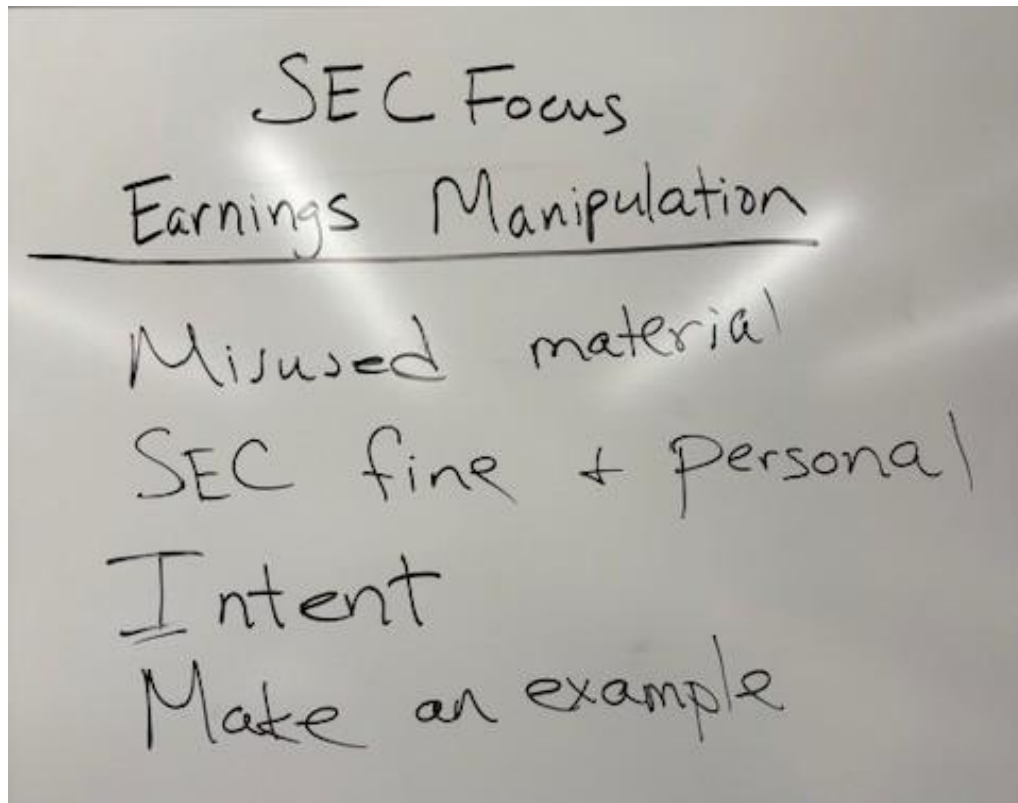 SEC Focus
Earnings Manipulation
Misused material
SEC fine + personal
Intent
Make an example